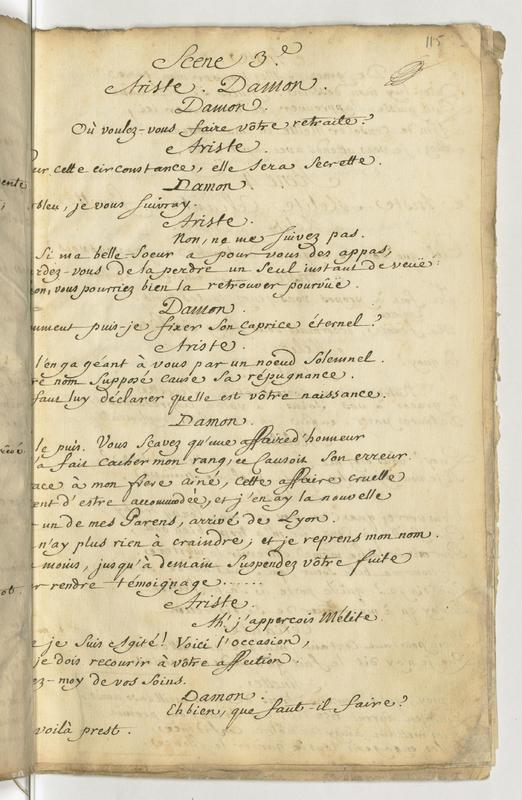 115
Scene 3.e
Ariste. Damon.
Damon.
Où voulez-vous faire vôtre retraite?
Ariste.
ur cette circonstance, elle sera secrette.
Damon
bleu, je vous suivray.
Ariste.
Non, ne me suivez pas.
Si ma belle-Soeur a pour vous des appas,
rdez-vous de la perdre un seul instant de veuë:
on, vous pourriez bien la retrouver pourvûe.
Damon.
mment puis-je fixer son caprice éternel?
Ariste.
l'engageant à vous par un noeud solemnel.
re nom supposé cause sa répugnance.
faut luy déclarer quelle est vôtre naissance.
Damon.
le puis. Vous scavez qu'une affaire d'honneur
a fait cacher mon rang, ce causoit son erreur.
ace à mon frere ainé, cette affaire cruelle
ent d'estre accommodée, et j'en ay la nouvelle
un de mes Parens, arrivé de Lyon.
n'ay plus rien à craindre; et je reprens mon nom.
moins, jusqu'à demain suspendez vôtre fuite
r rendre témoignage......
Ariste.
Ah! j'apperçois Mélite
e je suis agité! Voici l'occasion,
je dois recourir à vôtre affection.
ez-moy de vos soins.
Damon.
Eh bien, que faut-il faire?
voilà prest.